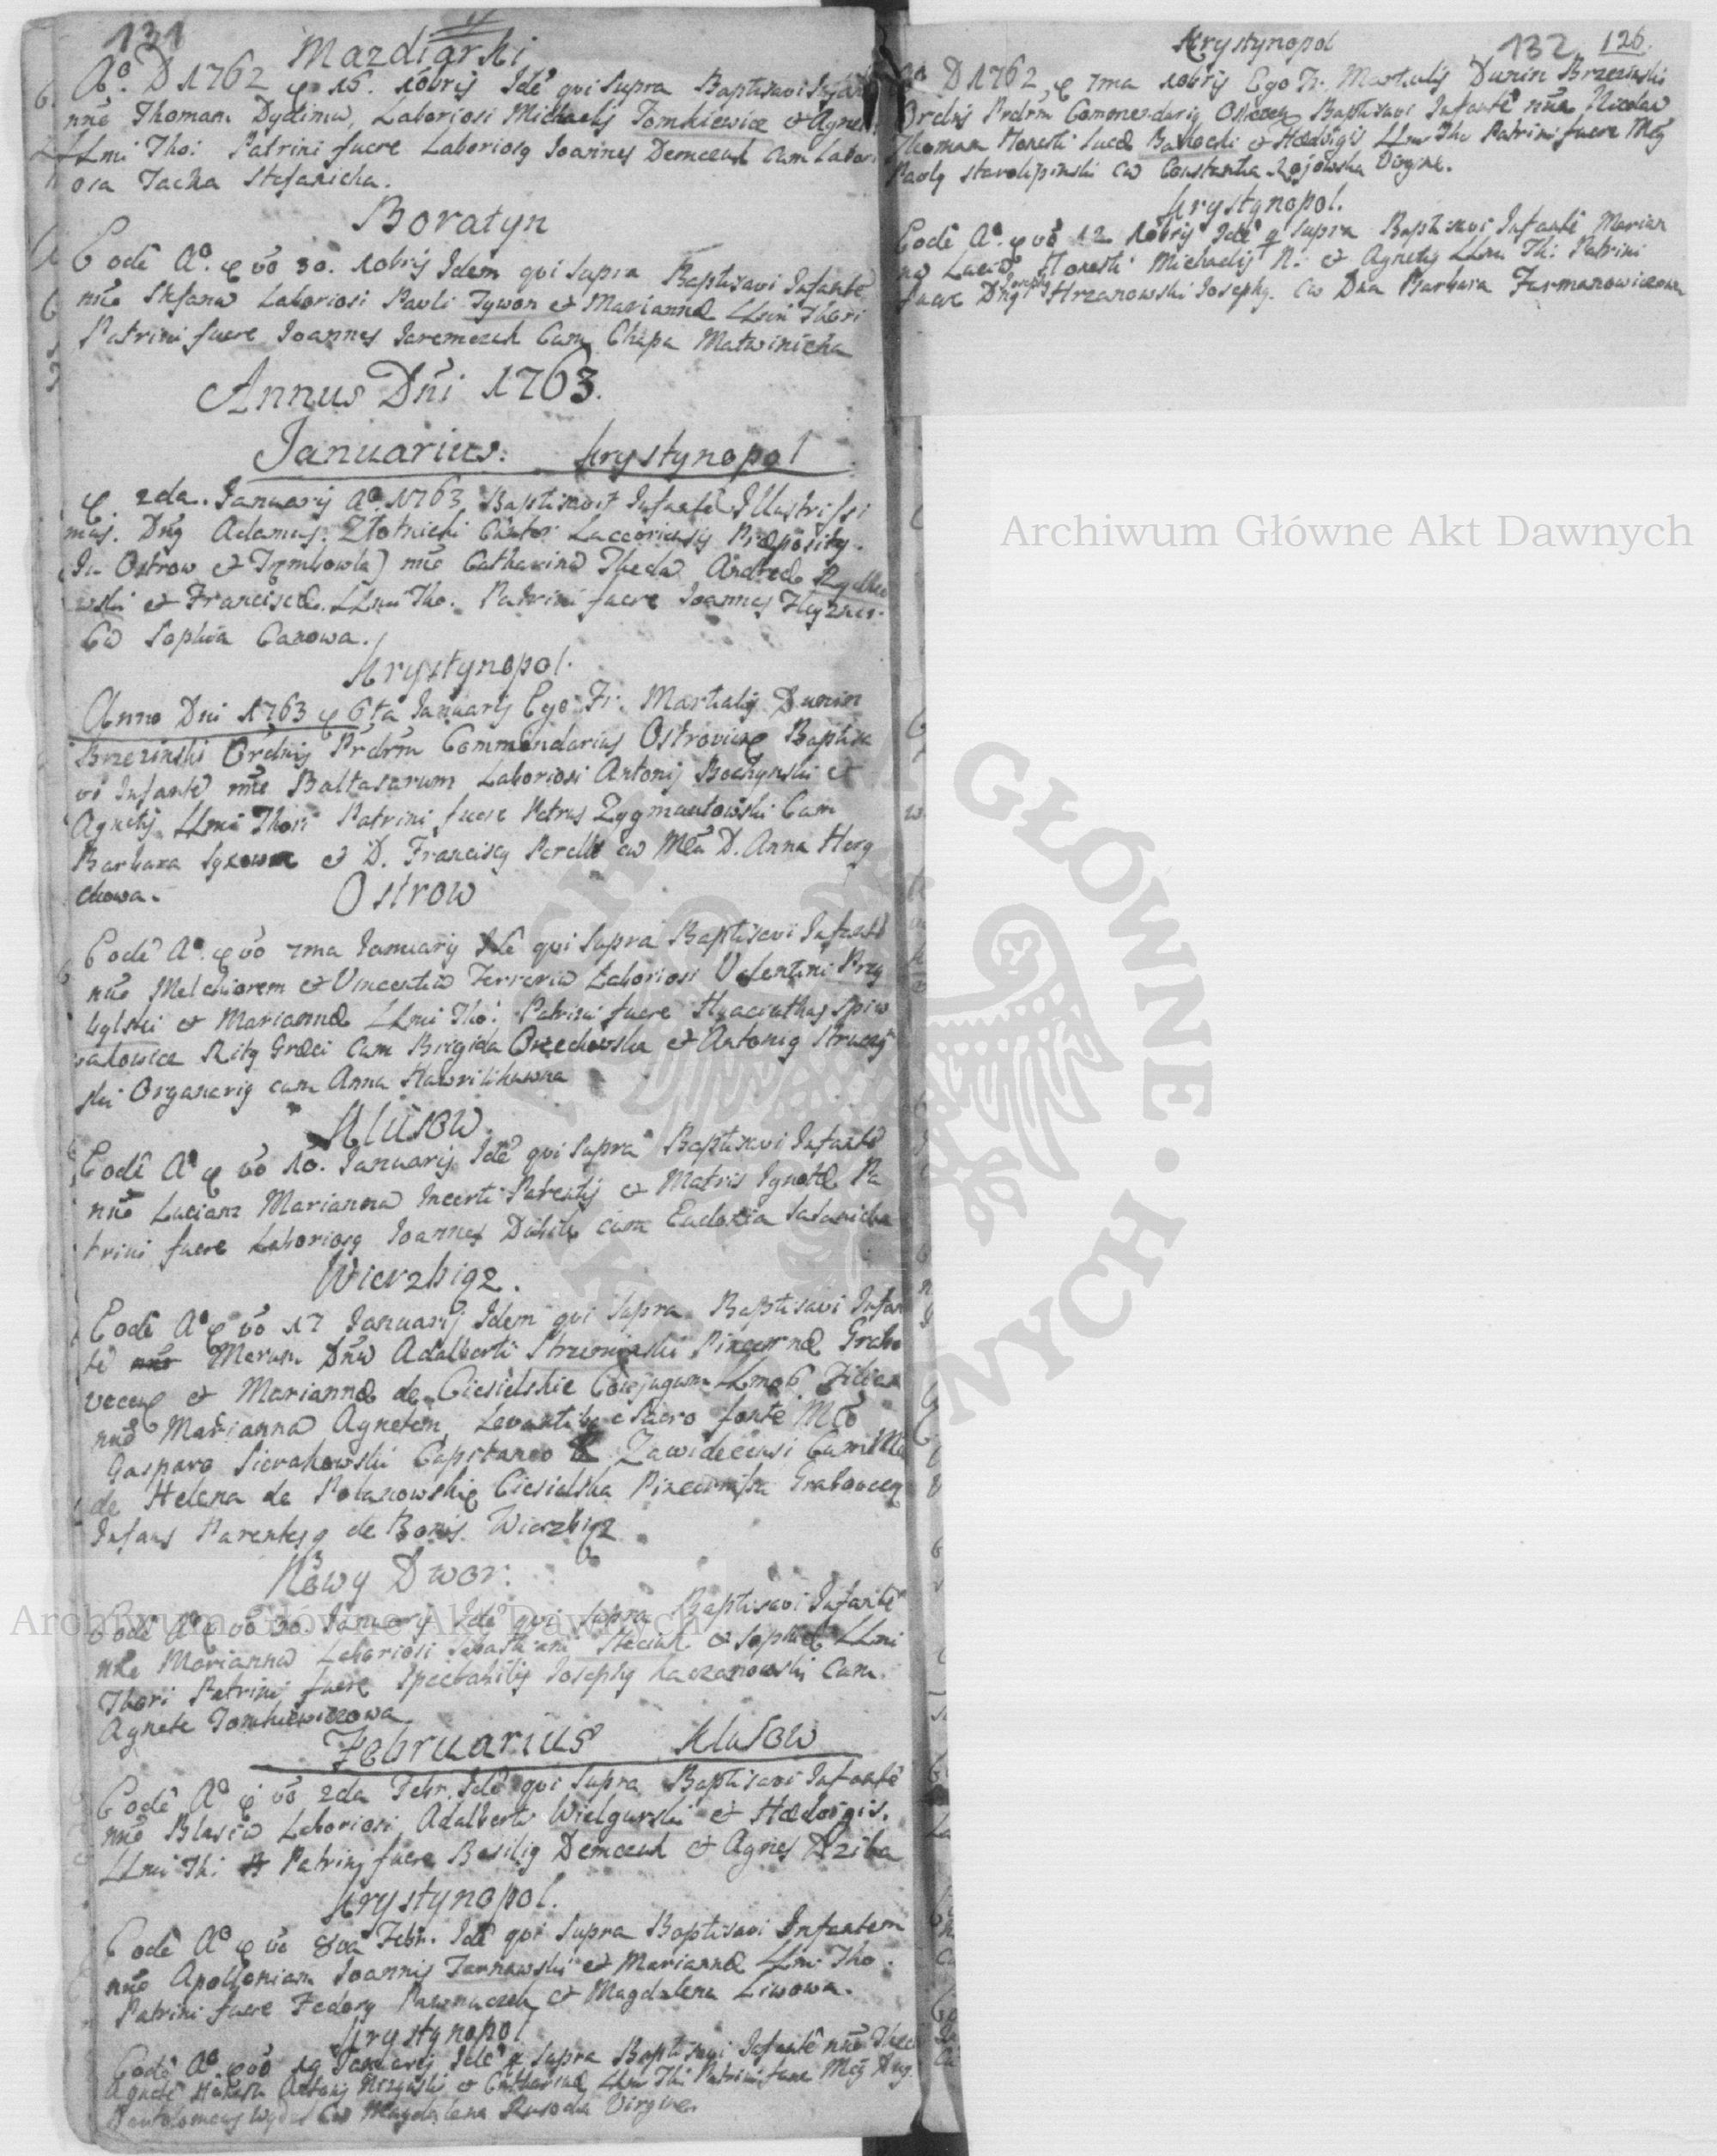 131
Mazdiarki
Aº. D 1762 φ 16. 10bris Idē qvi Supra Baptisavi Infan
nñe Thomam Dydimū, Laboriosi Michaelis Tomkiewicz & Agne
LLmi Tho: Patrini fuere Laboriosq Joannes Demczuk Cum Labori
osa Jacka Stefanicha.
Boratyn
Eodē Aº. φ vō 30. 10bris Idem qvi Supra Baptisavi Infantē
nñe Stefanū Laboriosi Pauli Tywon & Mariannæ LLmi Thori
Patrini fuere Joannes Jaremczuk Cum Chapa Matwinicha
Annus Dñi 1763.
Januarius. Krystynopol
φ 2da. Januarij Aº 1763 Baptisavit Infantē Illustrissi
mus. Dnq Adamus Złotnicki Cantor Luceoriensis Præpositq.
(In Ostrow & Trembowla) nñe Catharinā Theclā Andreæ
wski & Franciscæ. LLmi Tho. Patrini fuere Joannes
Cū Sophia Carowa.
Krystynopol.
Anno Dni 1763 φ 6ta Januarij Ego Fr: Martialis Dunin
Brzezinski Ordinis Prdrm Commendarius Ostroviensq Baptisa
vi Infantē nñe Baltasarum Laboriosi Antonij Bochynski &
Agnetis LLmi Thori Patrini fuere Petrus Zygmuntowski Cum
Barbara & D. Franciscq cū Mca D. Anna Hery
chowa.
Ostrow
Eodē Aº. φ vō 7ma Januarij Idē qvi Supra Baptisavi Infantē
nñe Melchiorem & Vincentiū Ferreriū Laboriosi Valentini Przy
bylski & Mariannæ LLmi Tho: Patrini fuere Hyacinthus Spiw
vakowicz Ritq Græci Cum Brigida Orzechowska & Antoniq
ski Organariq cum Anna Hawrilikowna
Klusow.
Eodē Aº φ vō 10. Januarij Idē qvi Supra Baptisavi Infantē
nñe Lucianā Mariannā Incerti Parentis & Matris Ignotæ Pa
trini fuere Laboriosq Joannes cum Eudoxia
Wierzbiąż.
Eodē Aº φ vō 17 Januarij Idem qvi Supra Baptisavi Infan
tē Mcrum Dnū Adalberti Strzemienski Pincernæ Grabo
vecensq & Mariannæ de Ciesielskie Conjugum Lmo6 Filiam
nñe Mariannā Agnetem, Levantibq e Sacro fonte Mco
Gasparo Sierakowski Capitaneo Zawidecensi Cum Ma
de Helena de Polanowskiq Ciesielska Pincernissa Grabovecen
Infans Parentesq de Bonis Wierzbiąż
Nowy Dwor.
Eodē Aº φ vō 30. Januarij Idē qvi Supra Baptisavi Infantē
nñe Mariannā Laboriosi Sebastiani Steciuk & Sophiæ LLmi
Thori Patrini fuere Spectabilis Josephq Kaczanowski Cum
Agnete Tomkiewiczowa
Februarius Klusow
Eodē Aº φ vō 2da Febr. Idē qvi Supra Baptisavi Infantē
nñe Blasiū Laboriosi Adalberti Wielgurski & Hedvigis.
LLmi Thi Patrini fuere Basiliq Demczuk & Agnes Dziba
Krystynopol.
Eodē Aº φ vō 8va Febr. Idē qvi Supra Baptisavi Infantem
nñe Apolloniam Joannis Tarnawski & Mariannæ LLmi Tho.
Patrini fuere Fedorq & Magdalena Liwowa.
Krystynopol
Eodē Aº φ vō 19 Januarij Idē q Supra Baptisavi Infantē nñe
Agnetē Honesti Antonij & Catharinæ LLmi Thi Patrini fuere
Bartolomeus cū Magdalena Virgine.
Krystynopol 132 126.
Aº D 1762, φ 7ma 10bris Ego Fr: Martialis Dunin Brzezinski
Ordinis Prdrm Commendariq Baptisavi Infantē nñe Nicolaū
Thomam Honesti Lucæ & Hedvigis LLmi Tho Patrini fuere Mcq
Paulq Starolipinski cū Constantia Virgine.
Krystynopol.
Eodē Aº. φ vō 12 10bris Idē q Supra Baptisavi Infantē Marian
nā Luciā Honesti Michaelis N. & Agnetis LLmi Th: Patrini
fuere Dnq Josephq Hrzanowski Josephq. Cū Dna Barbara Furmanowiczowa
Archiwum Główne Akt Dawnych
GŁÓWNE
Archiwum Główne Akt Dawnych